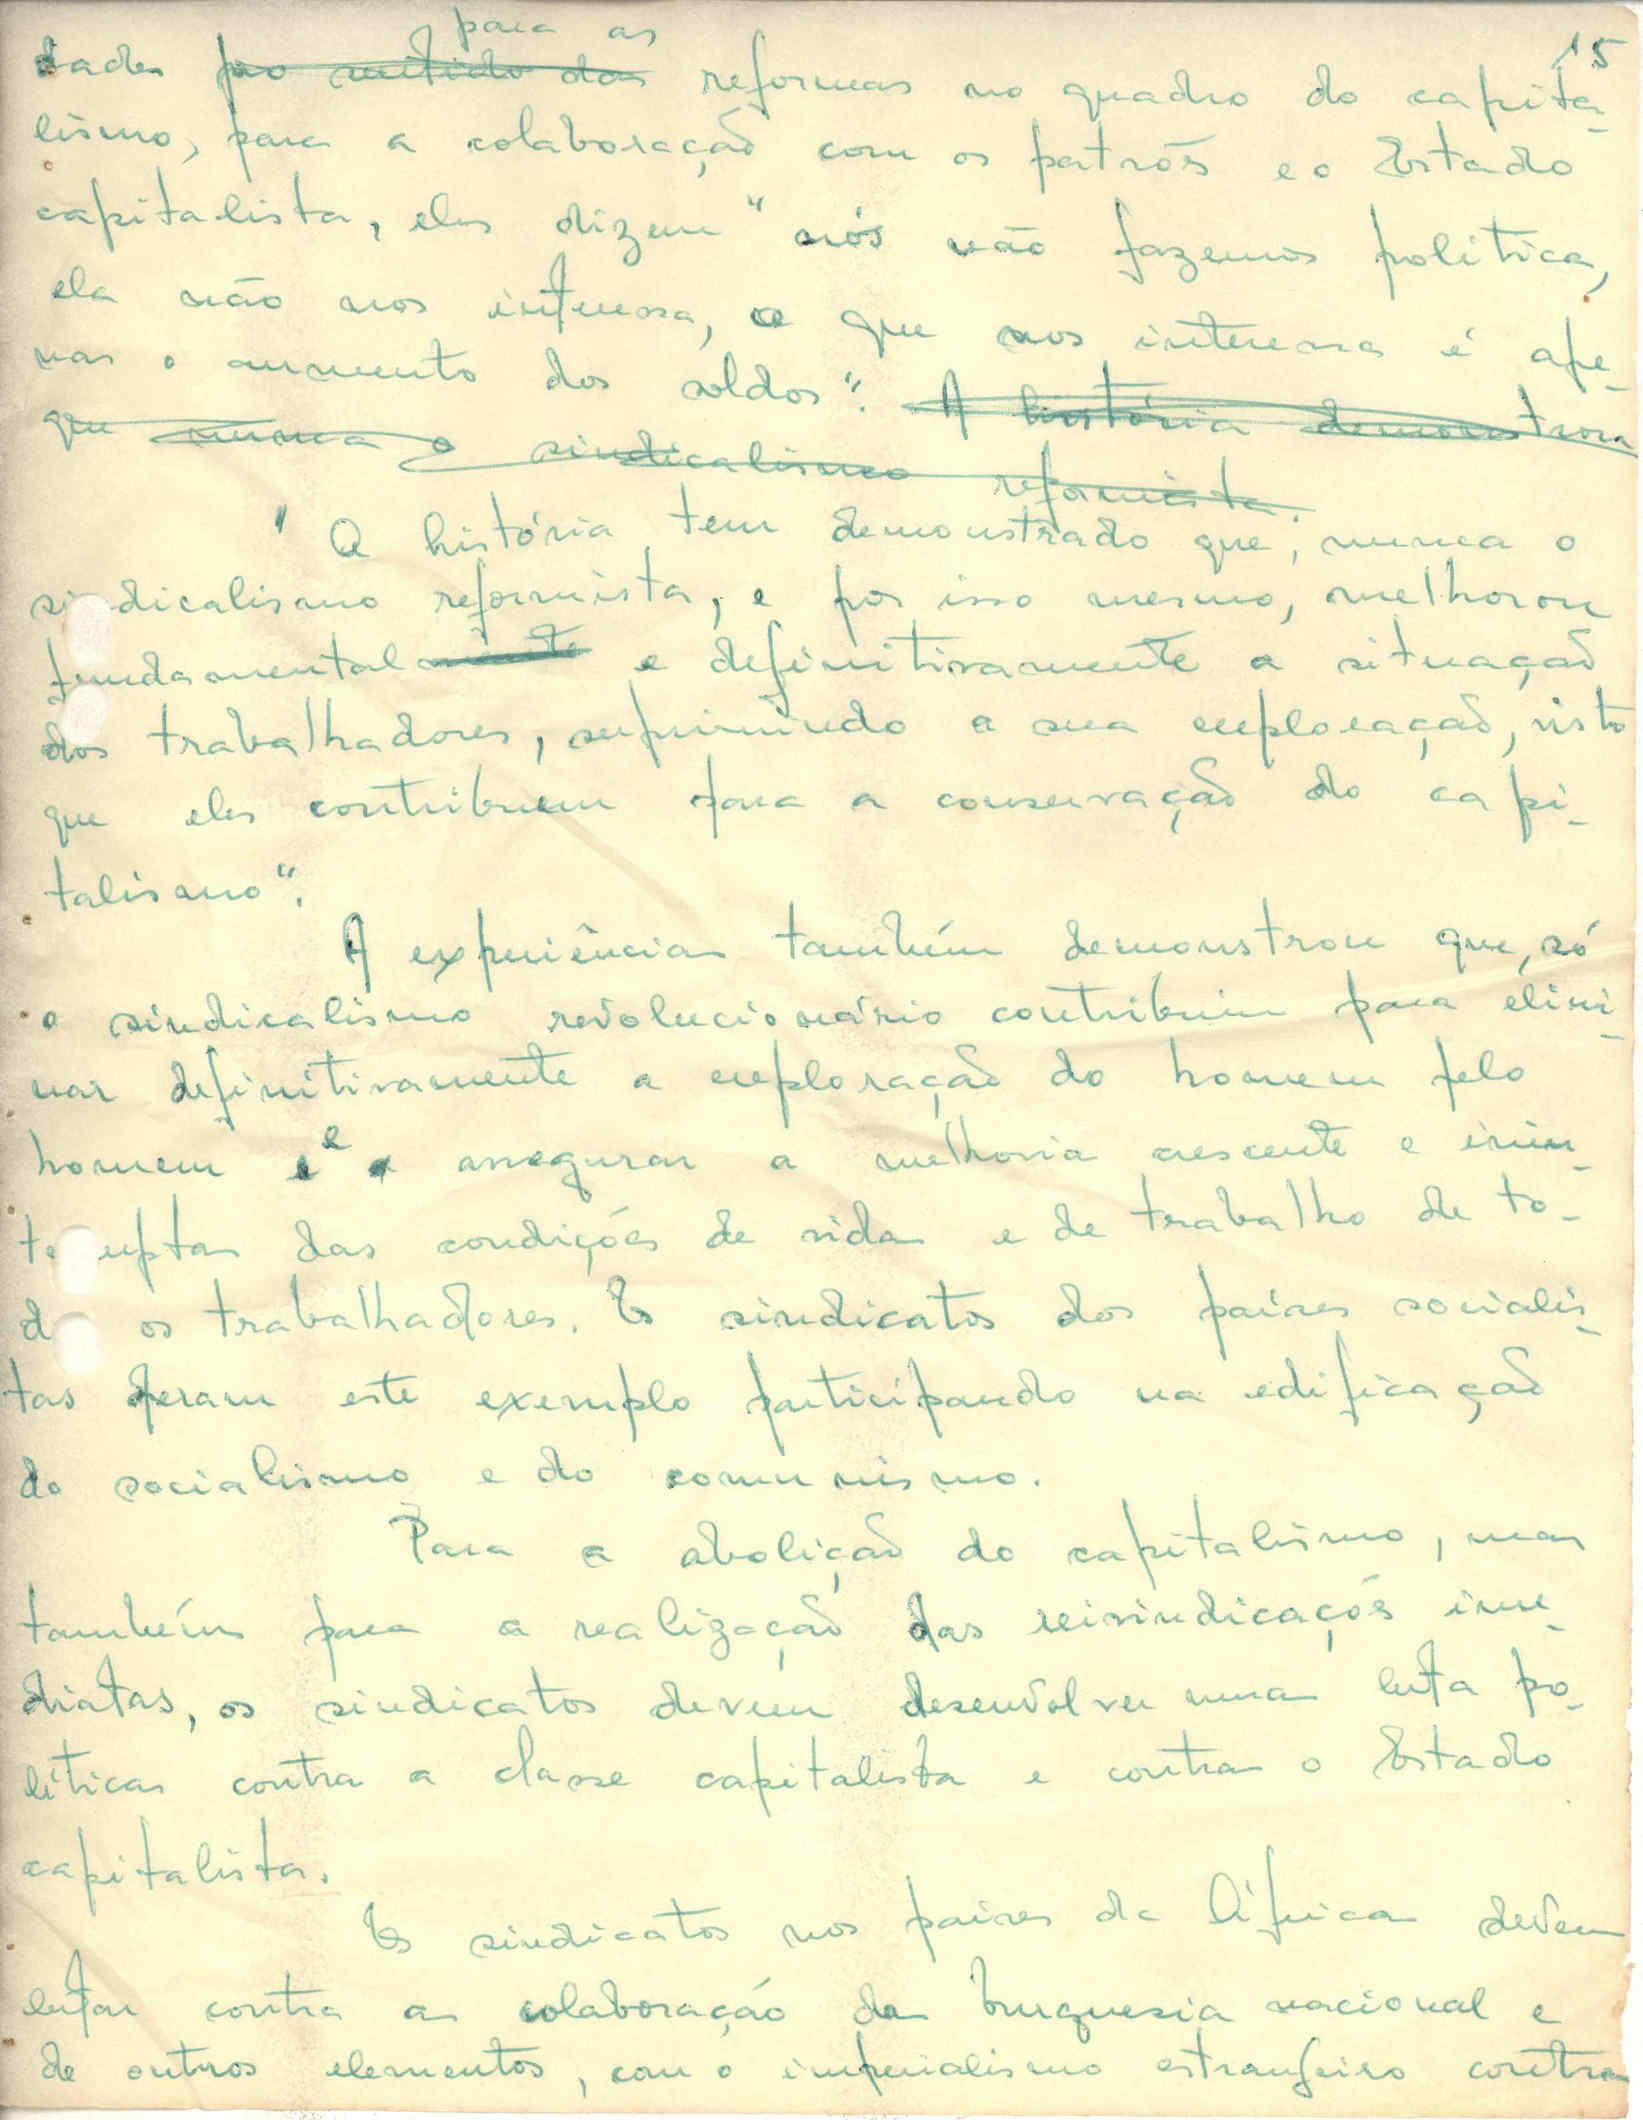 15
para as
dades no sentido das reformas no quadro do capita-
lismo, para a colaboração com os patrões e o Estado
capitalista, eles dizem "nós não fazemos política,
ela não nos interessa, o que nos interessa é ape-
nas o aumento dos soldos". A história demonstrou
que nunca o sindicalismo reformista.
"A história tem demonstrado que, nunca o
si dicalismo reformista, e por isso mesmo, melhorou
fundamentalmente e definitivamente a situação
dos trabalhadores, suprimindo a sua exploração, visto
que eles contribuem para a conservação do capi-
talismo".
A experiência também demonstrou que, só
o sindicalismo revolucionário contribuiu para elimi-
nar definitivamente a exploração do homem pelo
homem e a assegurar a melhoria crescente e inin-
te upta das condições de vida e de trabalho de to-
d os trabalhadores. Os sindicatos dos países socialis-
tas deram este exemplo participando na edificação
do socialismo e do comunismo.
Para a abolição do capitalismo, mas
também para a realização das reivindicações ime-
diatas, os sindicatos devem desenvolver uma luta po-
lítica contra a classe capitalista e contra o Estado
capitalista.
Os sindicatos nos países da África devem
lutar contra a colaboração da burguesia nacional e
de outros elementos, com o imperialismo estrangeiro contra